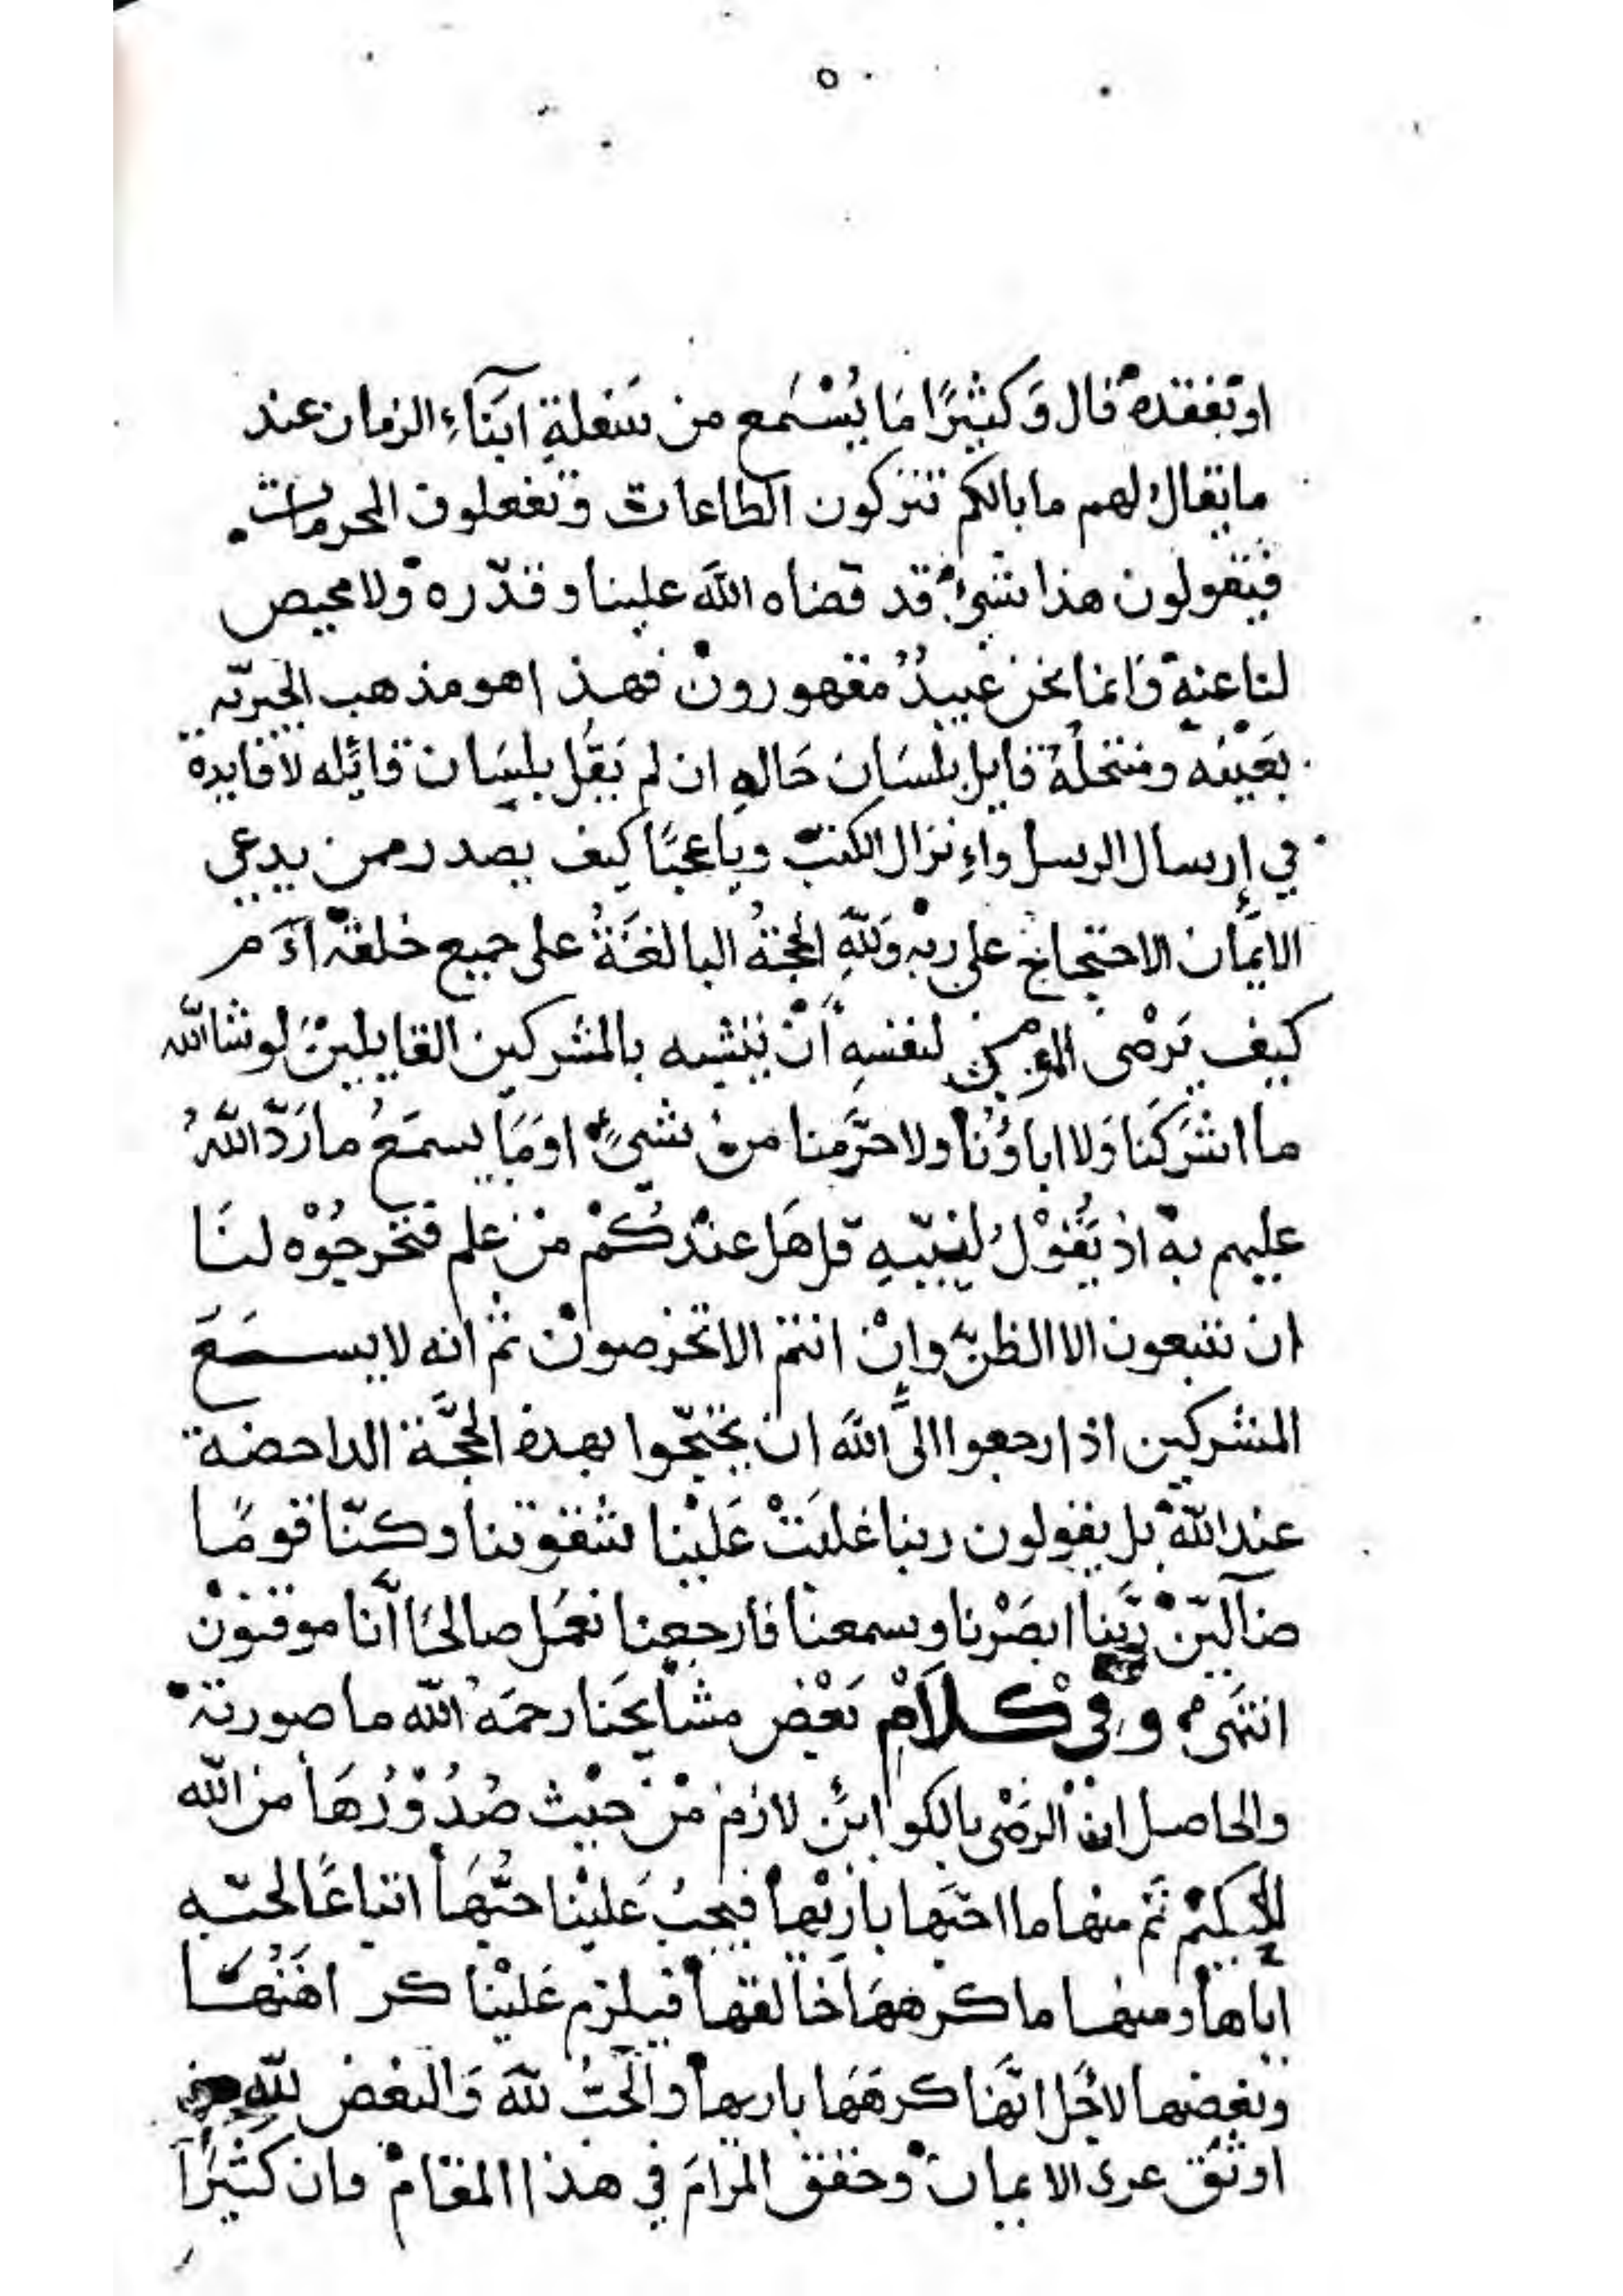 ٥٠
او بفقده قال وَكثيرًا مَا يُسْمَع من سَفلةِ ابنَاءِ الزمان عند
ما يقال لهم ما بالكم تتركون الطاعات وتفعلون المحرمات
فيقولون هذا شيءٌ قد قضاه اللهَ علينا وقدّره ولا محيص
لنا عنه وَانما نحن عبيدٌ مقهورون فهذا هو مذهب الجبريّه
بعَيْنه ومنتحلهُ قايل بلسَان حَالهِ ان لم يَقُل بلسَان قائِله لا فايدة
في إرسال الرسل وإنزال الكتب ويا عجبًا كيف يصدر ممن يدعى
الايمَان الاحتجاج على ربه وَللهِ الحجةُ البالغَةُ على جميع خلقه اَمْ
كيف يَرْضى المؤمن لنفسهِ أنْ يتشبه بالمشركين القايلينَ لو شا الله
ما اشرَكنَا وَلا اباؤُنا ولا حَرَّمنا من شيءٍ اوَمَا يسمَعُ ما رَدّ اللهُ
عليهم به اذ يَقُوْلُ لنبيّهِ قل هَل عندَكُمْ منْ علم فتخرجُوْه لنَا
ان تتبعون الا الظن وإنْ انتم الا تخرصونْ ثم انه لا يسمَعَ
المشركين اذا رجعوا الى الله ان يحتجّوا بهذه الحجَّة الداحضة
عند الله بل يقولون ربنا غلبَتْ عَليْنا شقوتنا وكنّا قومًا
ضآليّنْ ربَّنا ابصَرْنا وسمعنا فارجعنا نعمَل صالحًا انَّا موقنوْن
انتهَى وفي كلاَمْ بَعْض مشَايخَنا رحمَهُ الله ما صورته
والحاصل ان الرضَى بالكوائن لازم منْ حيْث صُدُوْرُهَا من الله
الحكيمْ ثم منها ما احبّها باريْها فيجبُ عَليْنا حبُّهَا اتباعًا لحبّه
اياها ومنها ما كرههَا خالقها فيلزم عَليْنا كراهَتُهَا
وبغضها لاجْل انَّها كرهَهَا باريها والحُبُّ لله وَالبغض لله من
اوثق عرى الايمان وحقق المرَامَ في هذا المقامْ فان كثيْرًا